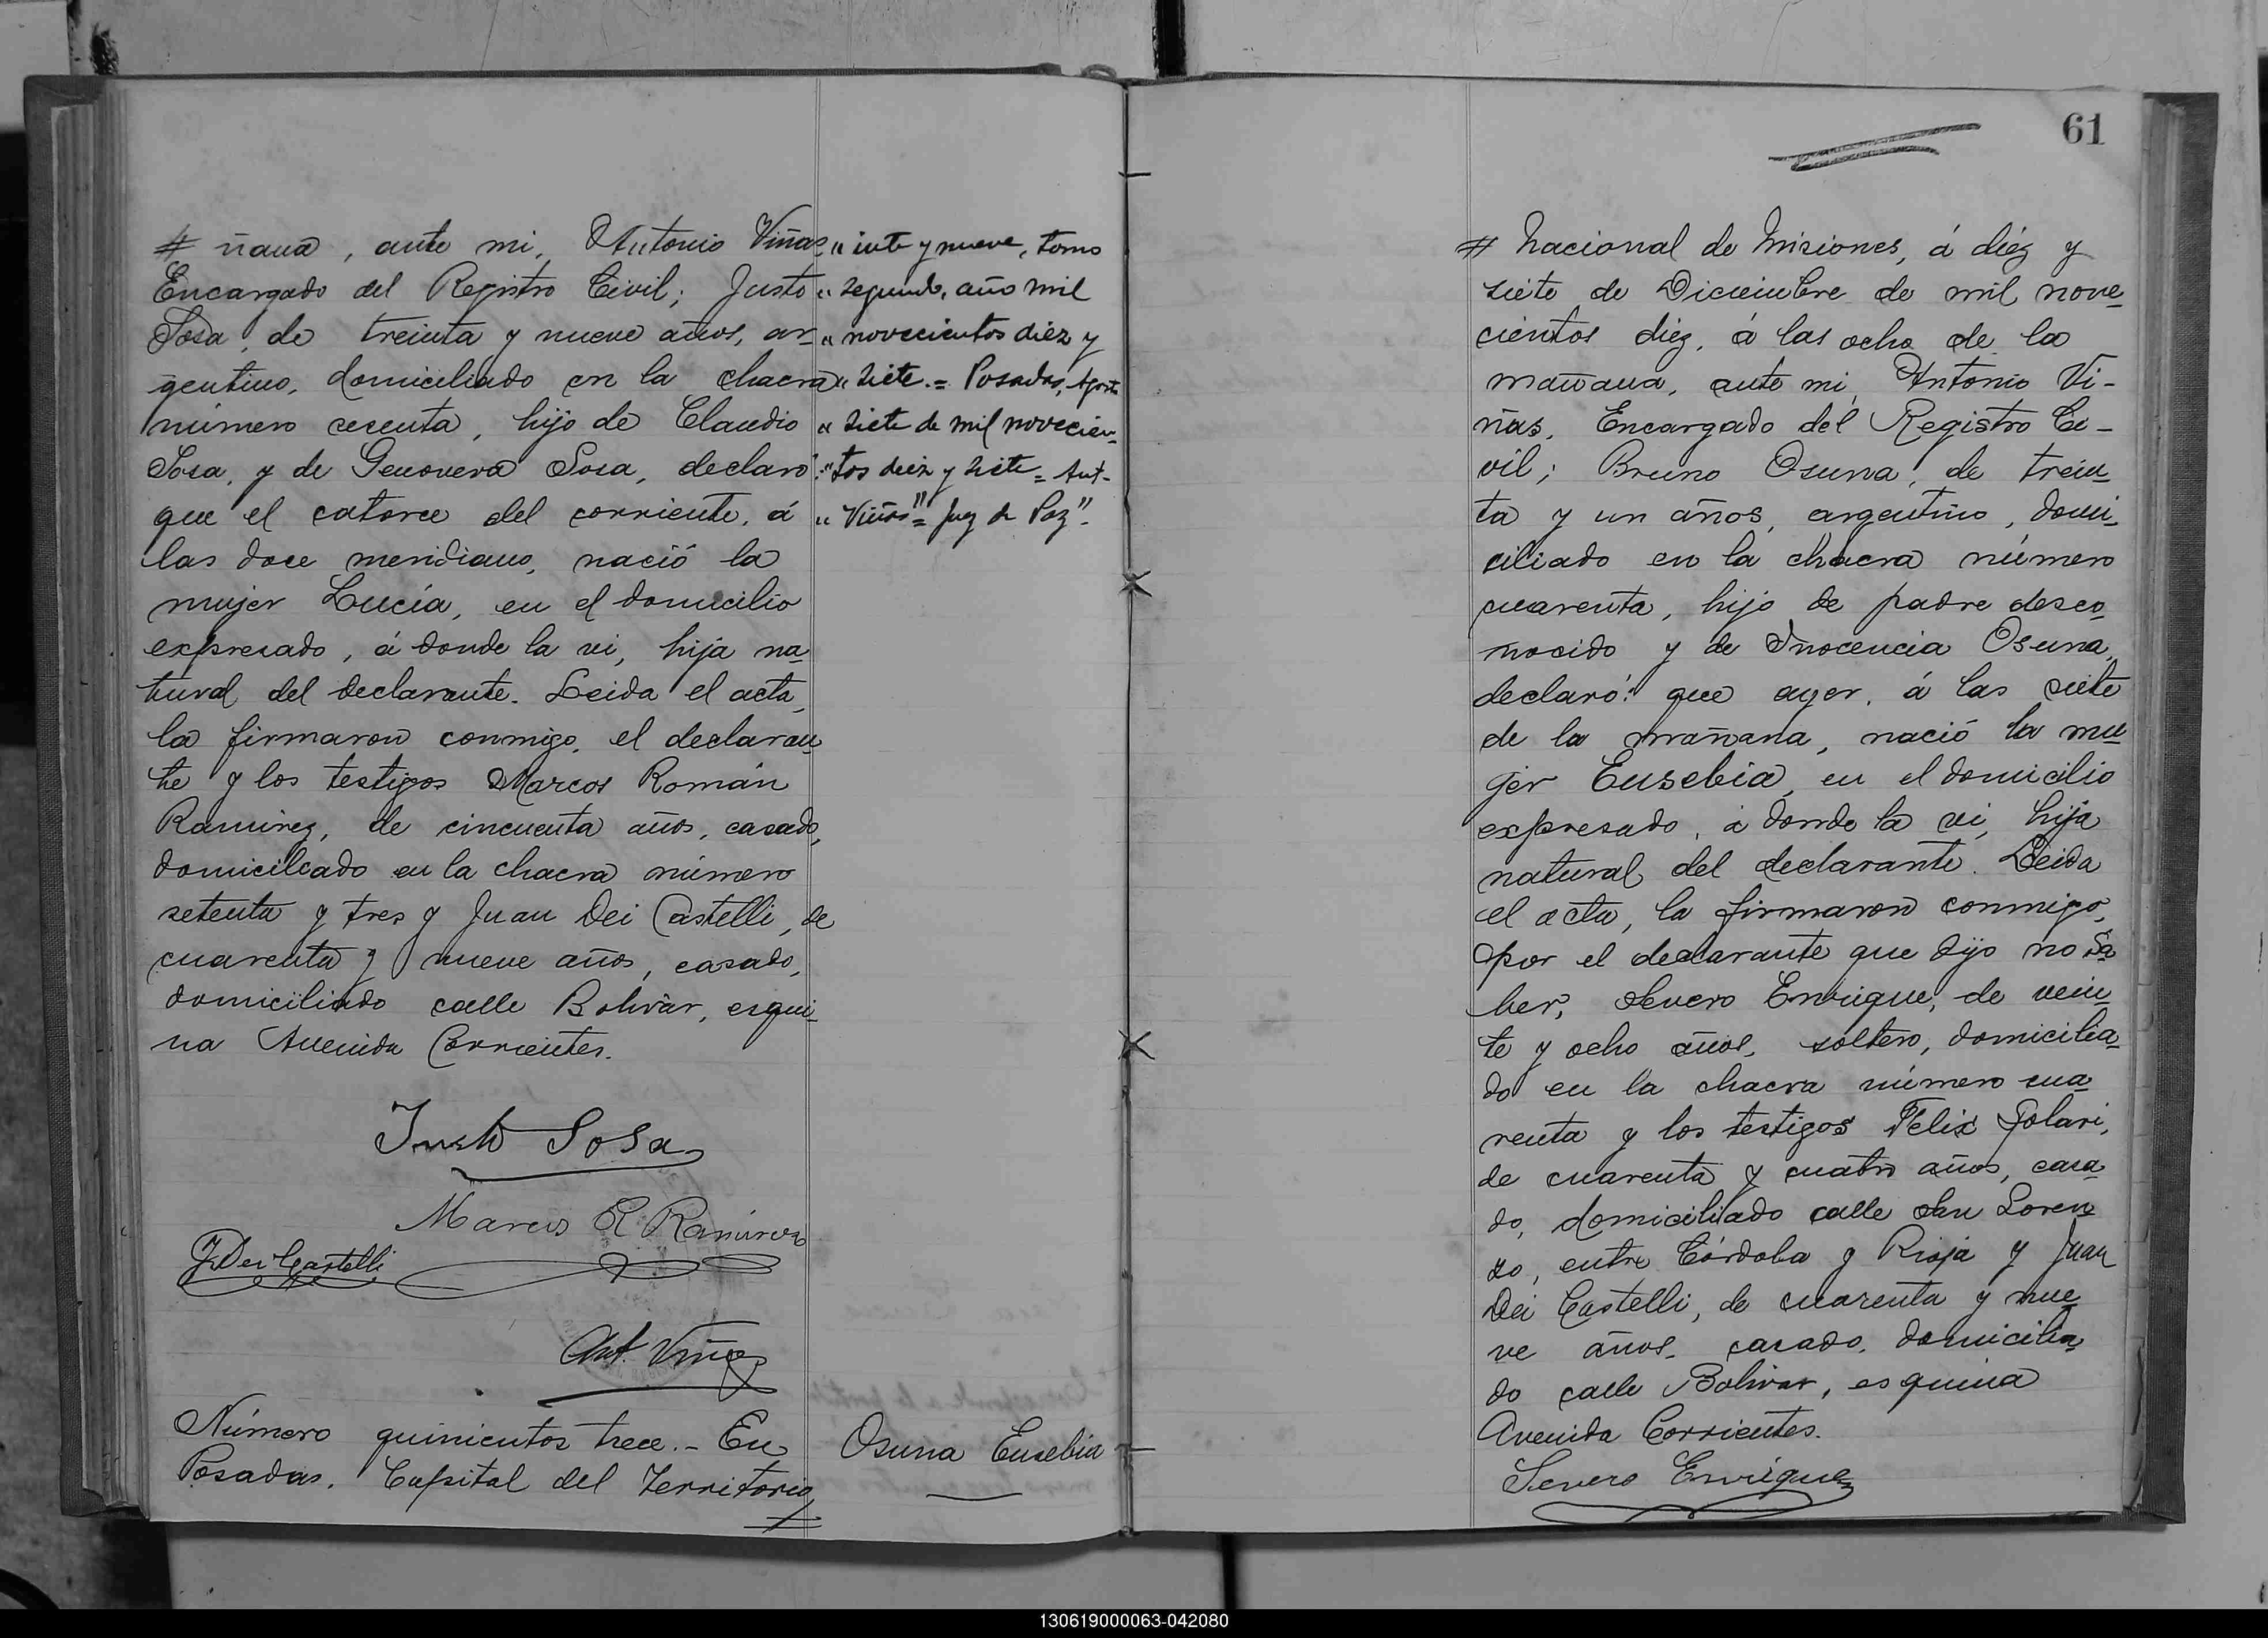 # ñana, ante mi, Antonio Viñas
Encargado del Registro Civil; Justo
Sosa, de treinta y nueve años, ar-
gentino, domiciliado en la chacra
número cesenta, hijo de Claudio
Sosa, y de Genovera Sosa, declaró:
que el catorce del corriente, á
las doce meridiano, nació la
mujer Lucía, en el domicilio
expresado, á donde la vi, hija na-
tural del declarante. Leida el acta,
la firmaron conmigo, el declaran-
te y los testigos Marcos Román
Ramirez, de cincuenta años, casado,
domiciliado en la chacra número
setenta y tres y Juan Dei Castelli, de
cuarenta y nueve años, casado,
domiciliado calle Bolivar, esqui-
na Avenida Corrientes.
Justo Sosa
Marcos R Ramirez
J. Dei Castelli
Ant. Viñas
Número quinientos trece.- En
Posadas, Capital del Territorio
"inte y nueve, tomo
"segundo, año mil
"novecientos diez y
"siete.= Posadas, Agosto
"siete de mil novecien-
"tos diez y siete= Ant-
"Viñas"= Juez de Paz".
Osuna Eusebia
61
# Nacional de Misiones, á diéz y
siete de Diciembre de mil nove-
cientos diez, á las ocho de la
mañana, ante mi, Antonio Vi-
ñas, Encargado del Registro Ci-
vil; Bruno Osuna, de trein-
ta y un años, argentino, domi-
ciliado en la chacra número
cuarenta, hijo de padre desco-
nocido y de Inocencia Osuna,
declaró: que ayer, á las siete
de la mañana, nació la mu-
jer Eusebia, en el domicilio
expresado, á donde la vi, hija
natural del declarante. Leida
el acta, la firmaron conmigo,
por el declarante que dijo no sa-
ber, Severo Enrique, de vein-
te y ocho años, soltero, domicilia-
do en la chacra número cua-
renta y los testigos Felix Solari,
de cuarenta y cuatro años, casa-
do, domiciliado calle San Loren-
zo, entre Córdoba y Rioja y Juan
Dei Castelli, de cuarenta y nue-
ve años, casado, domicilia-
do calle Bolivar, esquina
Avenida Corrientes.
Severo Enrique
130619000063-042080